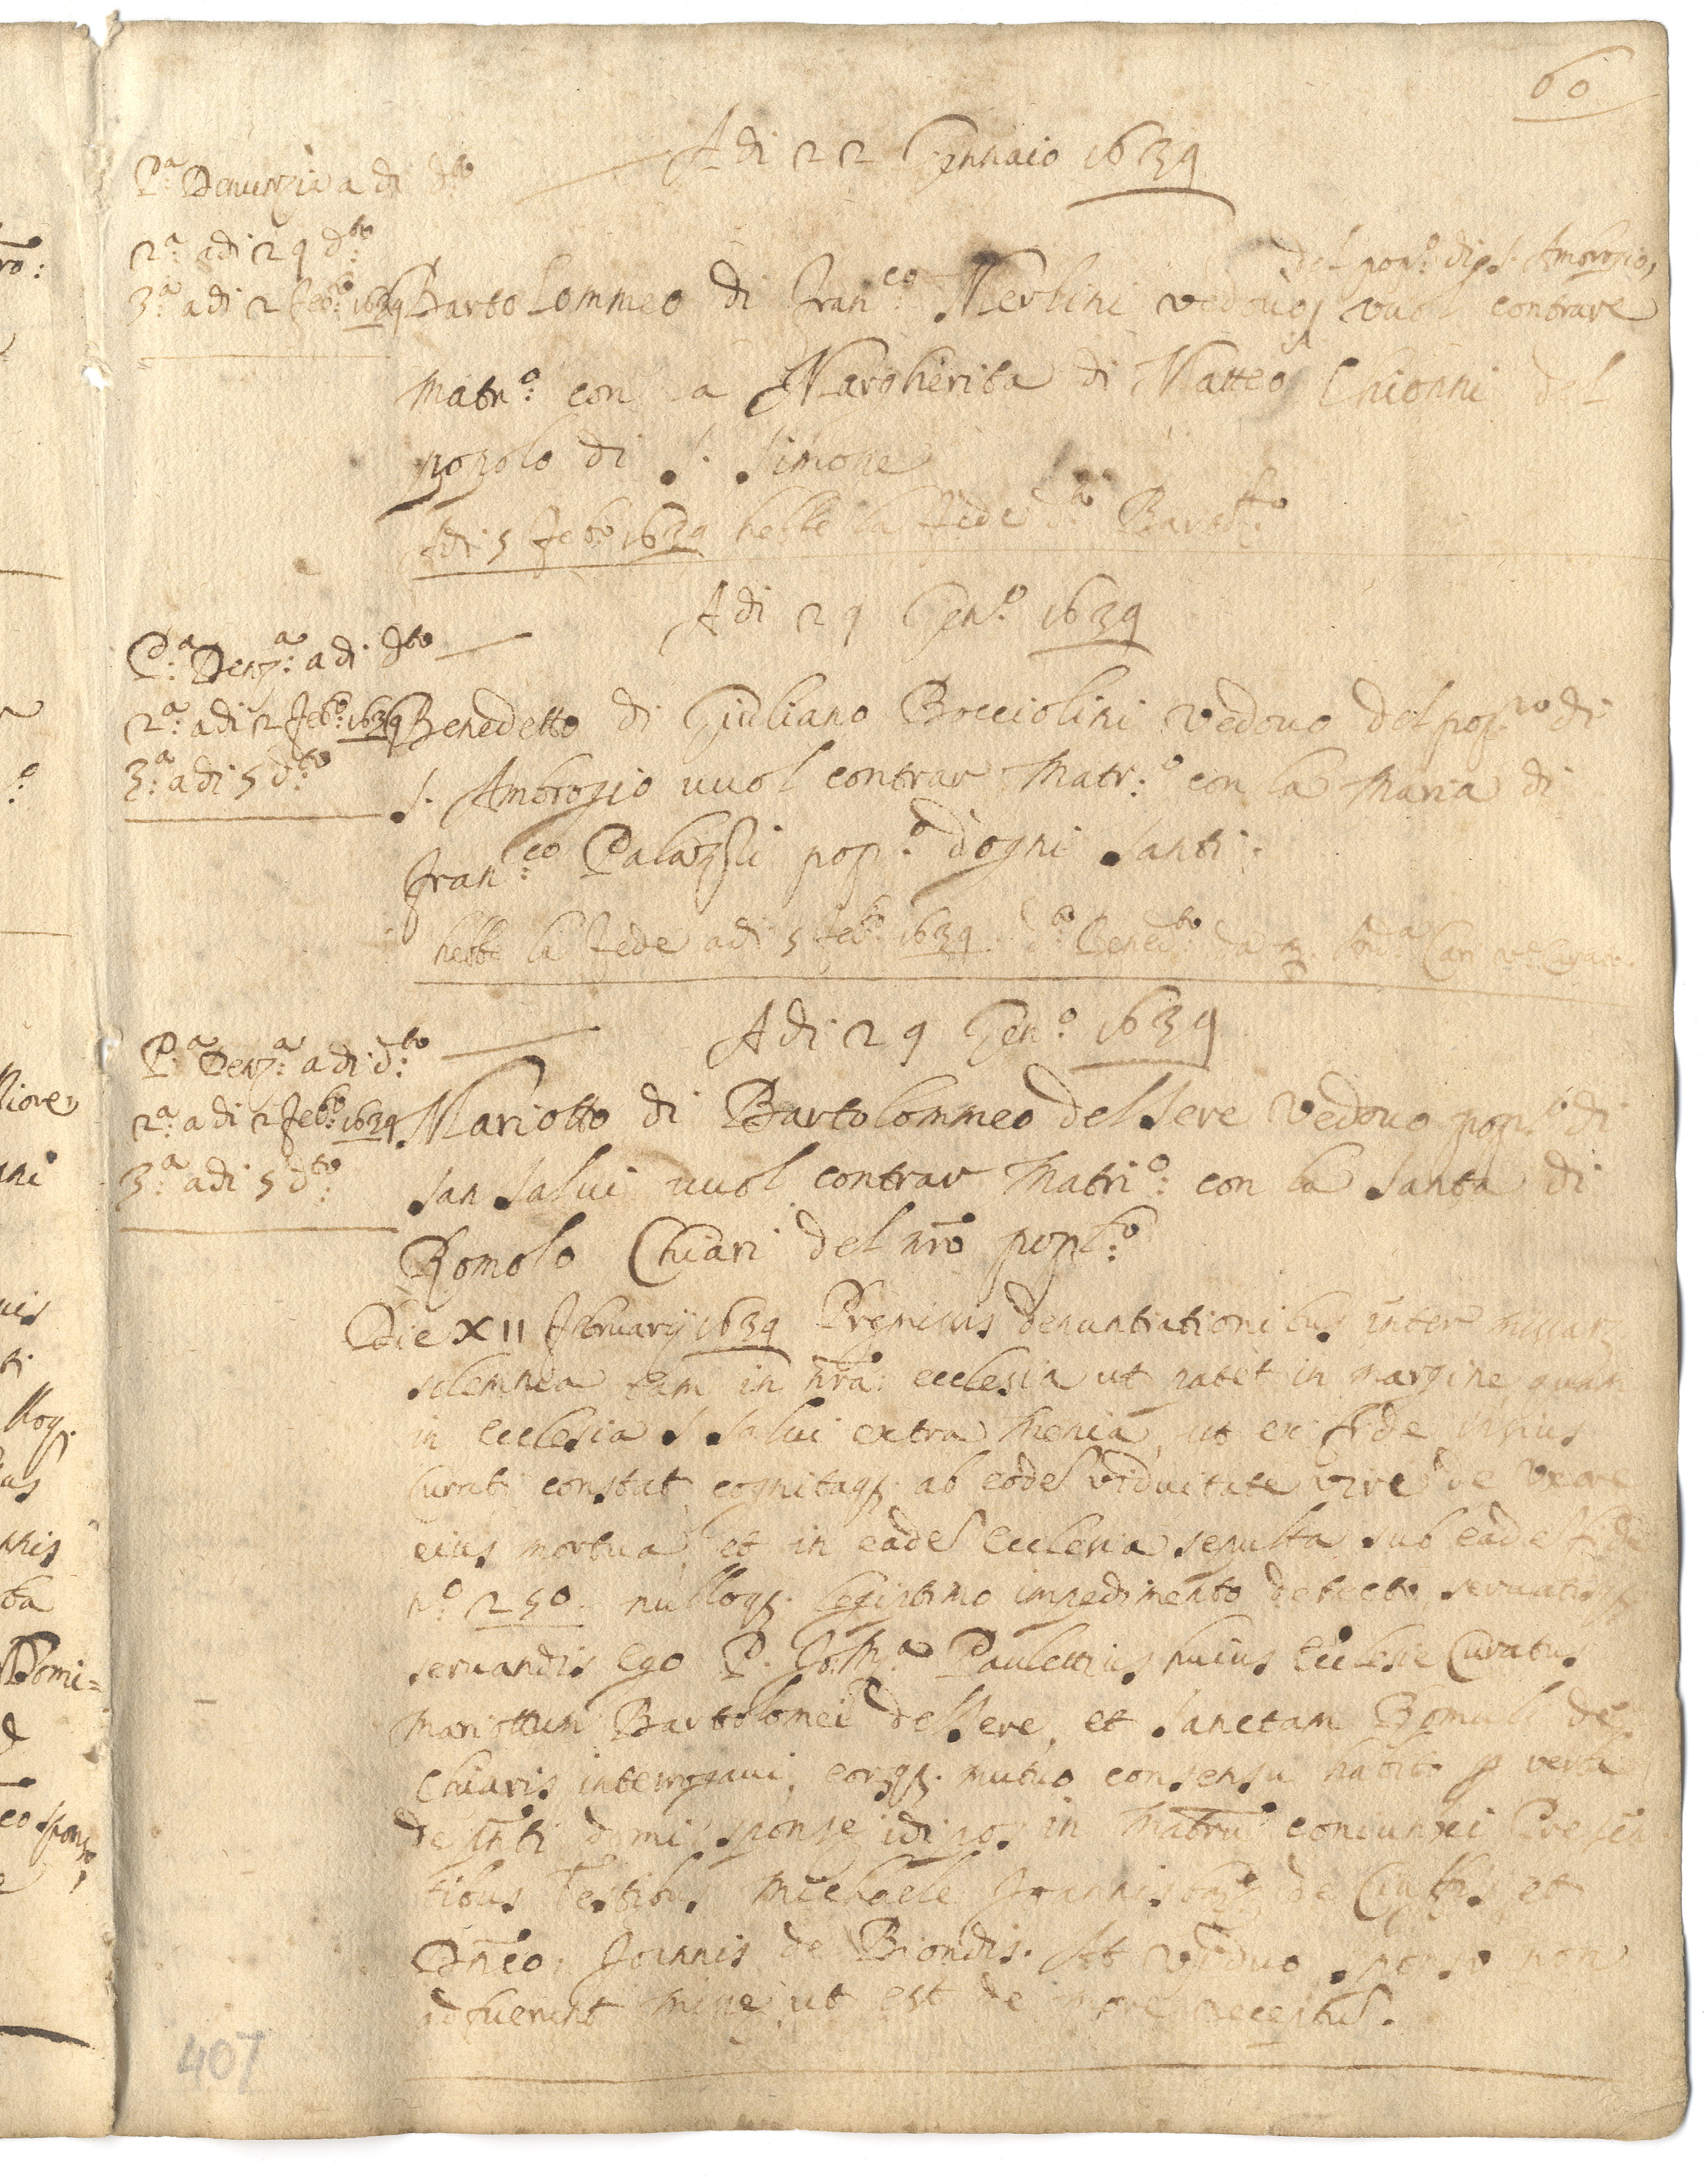 60
Adi 22 Gennaio 1639
P.a Denunzia a di d.to
2.a adi 29 d.to
3.a adi 2 Feb.o 1639
del pop.o di S. Ambrogio,
Bartolommeo di Fran.co Merlini vedovo vuol contrare
Matr.o con la Margherita di Matteo Chionni del
popolo di S. Simone
Adi 5 Feb.o 1639 hebbe la fede d.to Bar.to
Adi 29 Gen.o 1639
P.a Denz.a a di d.to
2.a adi 2 Feb.o 1639
3.a adi 5 d.to
Benedetto di Giuliano Bocciolini vedovo del pop.lo di
S. Ambrogio vuol contrar Matr.o con la Maria di
Fran.co Palazzi pop.o d'ogni Santi.
hebbe la fede adi 5 Feb.o 1639 d.to Bened.to da
Adi 29 Gen.o 1639
P.a Denz.a a di d.to
2.a a di 2 Feb.o 1639
3.a adi 5 d.to
Mariotto di Bartolommeo del Sere vedovo pop.lo di
San Salvi vuol contrar Matri.o con la Santa di
Romolo Chiari del nro popl.o
Die XII Februarij 1639 Premissis denuntiationibus inter missarum
solemnia tam in nra ecclesia ut patet in margine quam
in ecclesia S. Salvi extra menia, ut ex fide illius
Curati constat, cognitaq; ab eodē viduitate viri de uxore
eius mortua, et in eadē ecclesia sepulta sub eadē fide
n.o 250. nulloq; legiptimo impedimento detecto servatisq;
servandis Ego P. Jo: M.a Paulettius huius Ecclesie Curatus
Mariottum Bartolomei del Sere, et Sanctam Romuli de
Chiaris interrogavi, eorq; mutuo consensu habito p verba
de pnti domi sponse in Matriū coniunxi Presen
tibus Testibus Michaele Joannis de et
Dnico Joannis de Biondis. At viduo sponso non
adfuerunt ut est de more receptū.
407